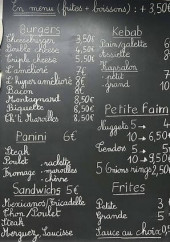 En menu (frites + boissons) : + 3,50€
Burgers
Cheeseburger 3,50€
Double cheese 4,50€
Triple cheese 5,50€
L'amélioré 7€
L'hyper amélioré 8€
Bacon 8€
Montagnard 8,50€
Biquette 8,50€
Ch'ti Maroilles 8,50€
Panini 6€
Steak
Poulet - raclette
Fromage - maroilles
- chèvre
Sandwichs 5€
Mexicanos/Fricadelle
Thon/Poulet
Steak
Merguez, Saucisse
Kebab
Pain/galette 6
Assiette 8
- petit
- grand 10
Petite Faim
Nuggets 5 → 4
10 → 6,50€
Tenders 5 → 5
10 → 9,50€
5 Onions rings 2,50€
Frites
Petite 3
Grande 5
Sauce au choix 0,5